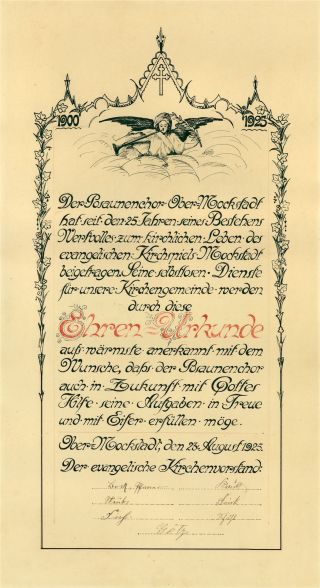 1900 1925
Der Posaunenchor Ober-Mockstadt
hat seit den 25 Jahren seines Bestehens
Wertvolles zum kirchlichen Leben des
evangelischen Kirchspiels Mockstadt
beigetragen. Seine selbstlosen Dienste
für unsere Kirchengemeinde werden
durch diese
Ehren-Urkunde
aufs wärmste anerkannt mit dem
Wunsche, daß der Posaunenchor
auch in Zukunft mit Gottes
Hilfe seine Aufgaben in Treue
und mit Eifer erfüllen möge.
Ober-Mockstadt, den 23. August 1925.
Der evangelische Kirchenvorstand: